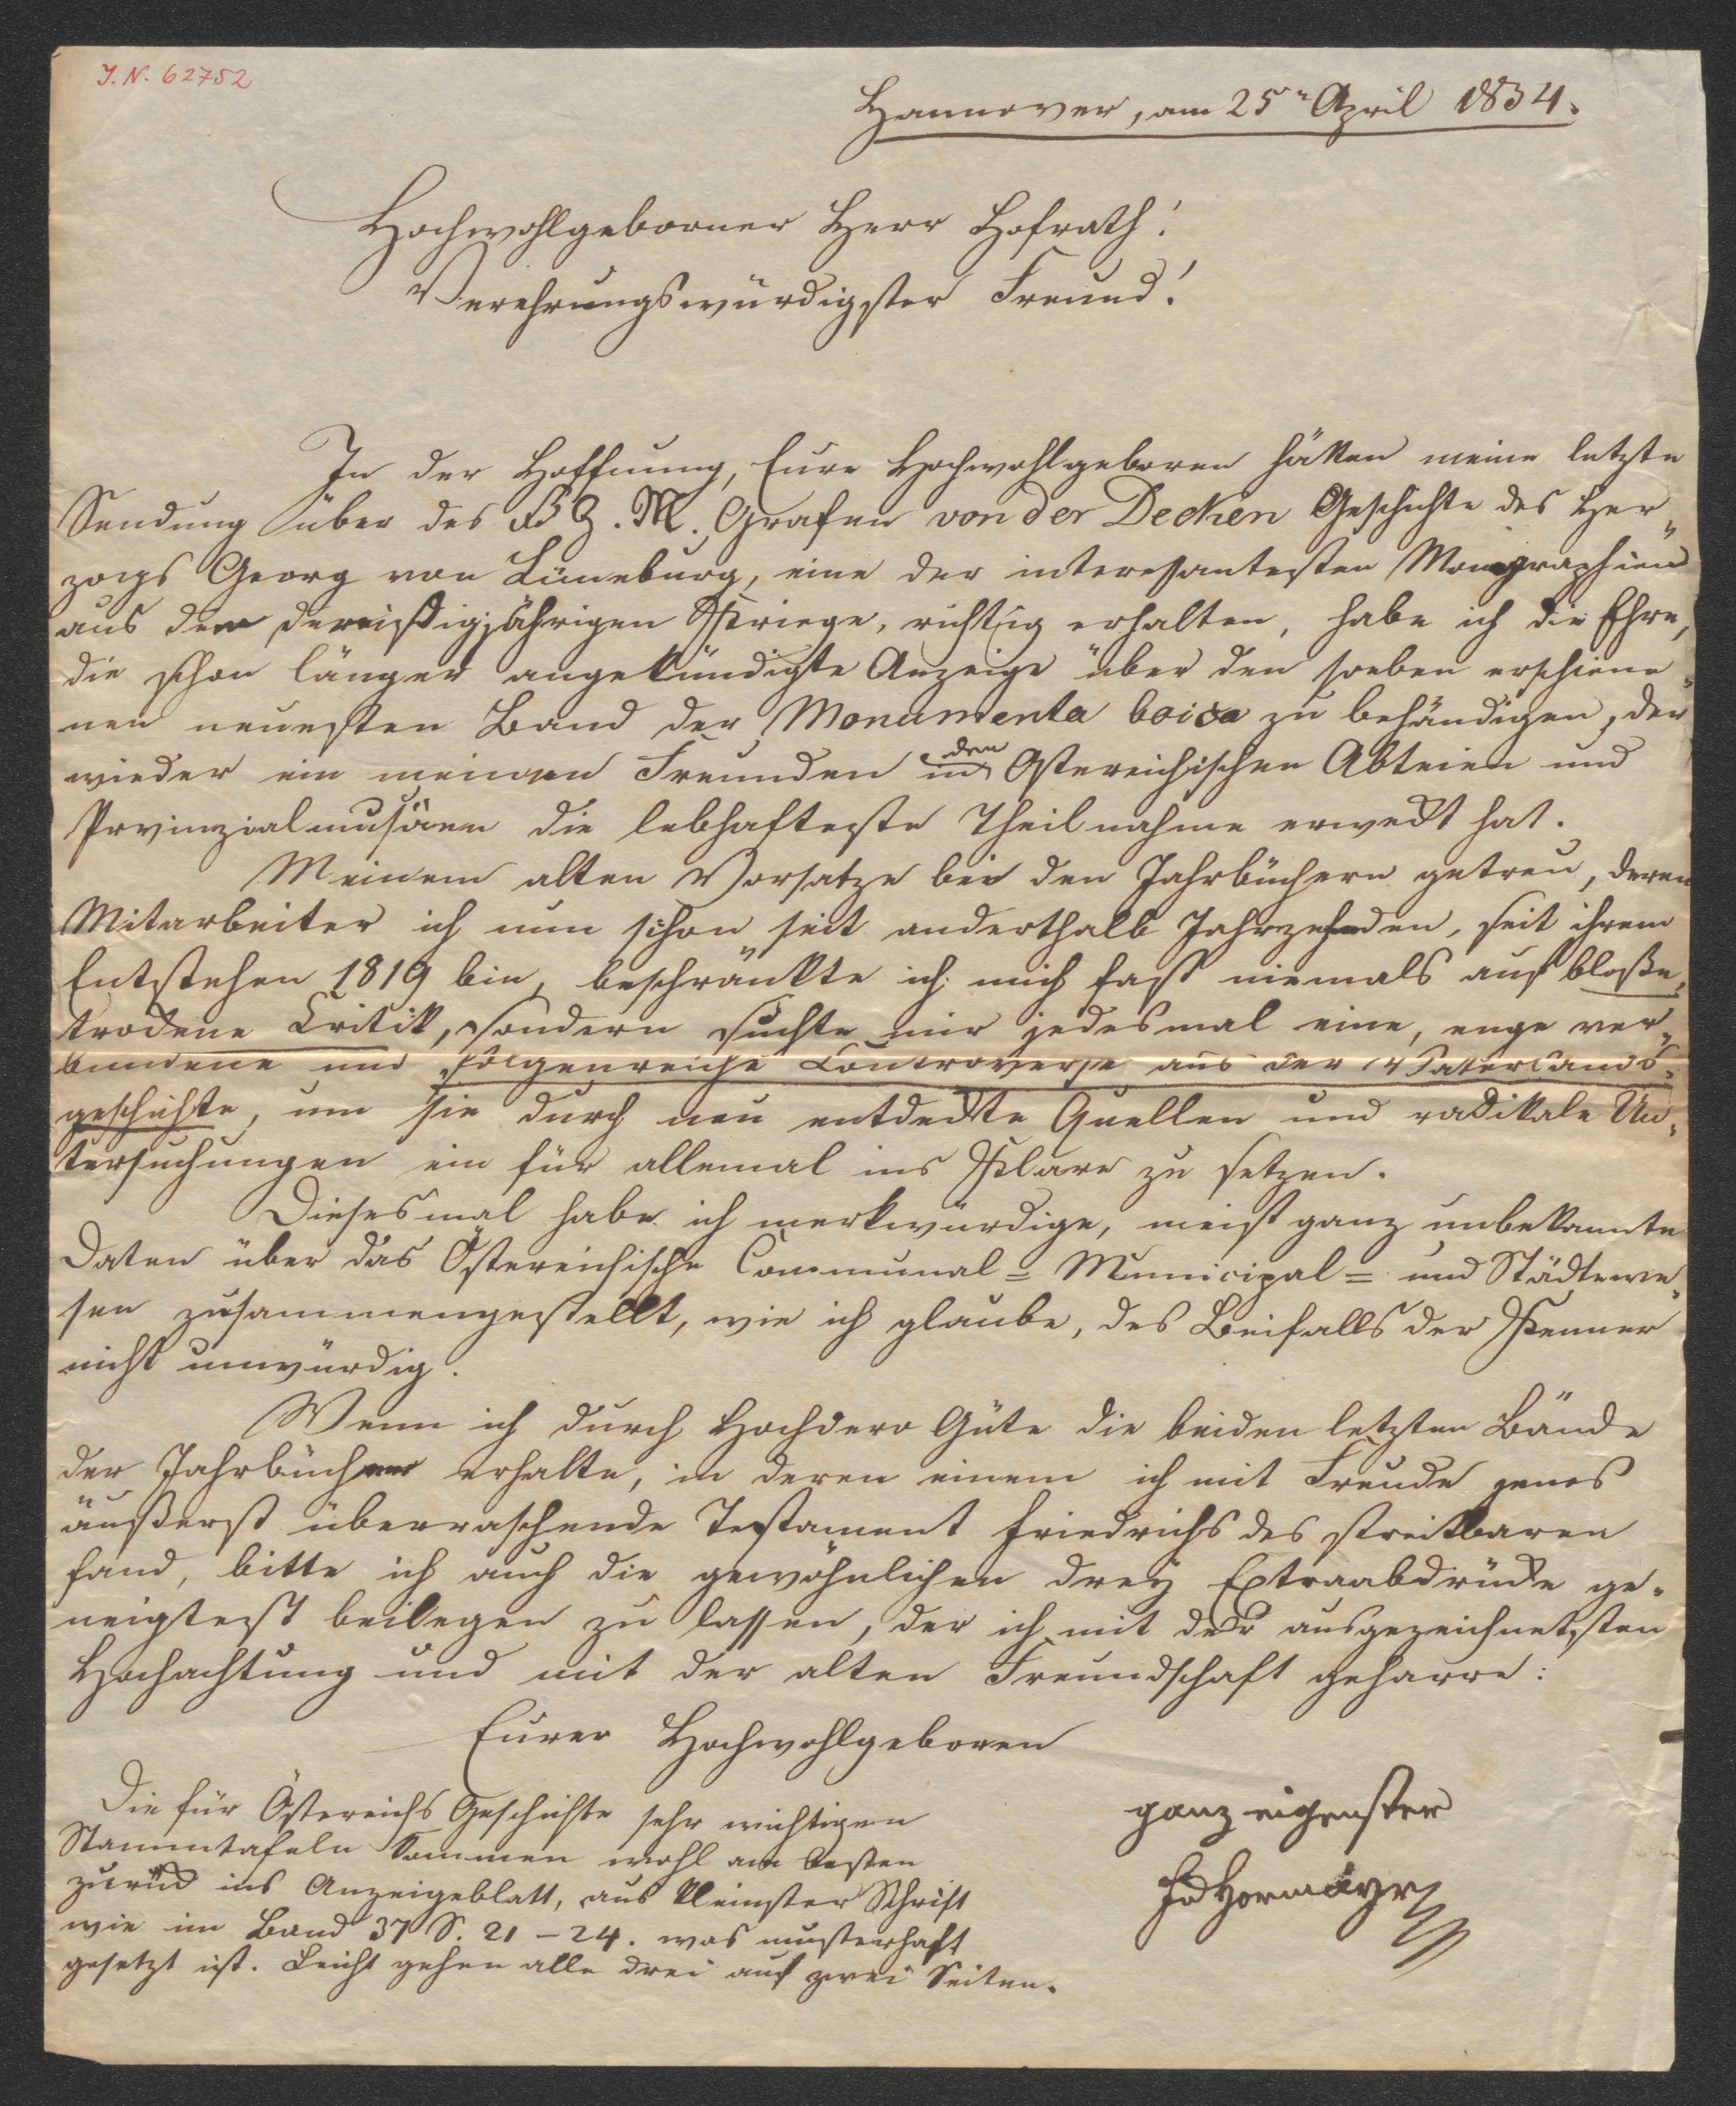 J. N. 62752
Hannover, am 25n April 1834.
Hochwohlgeborner Herr Hofrath!
Verehrungswürdigster Freund!
In der Hoffnung, Eure Hochwohlgeboren hätten meine letzte
Sendung über des F. Z. M. Grafen von der Decken Geschichte des Her-
zogs Georg von Lüneburg, eine der interessantesten Monographien
aus dem dreißigjährigen Kriege, richtig erhalten, habe ich die Ehre,
die schon länger angekündigte Anzeige über den soeben erschiene-
nen neuesten Band der Monumenta boica zu behändigen, der
wieder in meinen Freunden in den Östereichischen Abteien und
Provinzialmusäen die lebhafteste Theilnahme erweckt hat.
Meinem alten Vorsatze bei den Jahrbüchern getreu, deren
Mitarbeiter ich nun schon seit anderthalb Jahrzehnden, seit ihrem
Entstehen 1819 bin, beschränkte ich mich fast niemals auf bloße,
trockene Critik, sondern suchte mir jedesmal eine, enge ver-
bundene und folgenreiche Controverse aus der Vaterlands-
geschichte, um sie durch neu entdeckte Quellen und radikale Un-
tersuchungen ein für allemal ins Klare zu setzen.
Diesesmal habe ich merkwürdige, meist ganz unbekannte
Daten über das Östereichische Communal- Municipal- und Städtewe-
sen zusammengestellt, wie ich glaube, des Beifalls der Kenner
nicht unwürdig.
Wenn ich durch Hochdero Güte die beiden letzten Bände
der Jahrbücher erhalte, in deren einem ich mit Freude jenes
äußerst überraschende Testament Friedrichs des streitbaren
fand, bitte ich auch die gewöhnlichen drey Extraabdrücke ge-
neigtest beilegen zu lassen, der ich mit der ausgezeichnetsten
Hochachtung und mit der alten Freundschaft geharre:
Eurer Hochwohlgeboren
ganz eigenster
Hormayr
Die für Östereichs Geschichte sehr wichtigen
Stammtafeln kommen wohl am besten
zurück ins Anzeigeblatt, aus kleinster Schrift
wie im Band 37 S. 21 – 24. was musterhaft
gesetzt ist. Leicht gehen alle drei auf zwei Seiten.